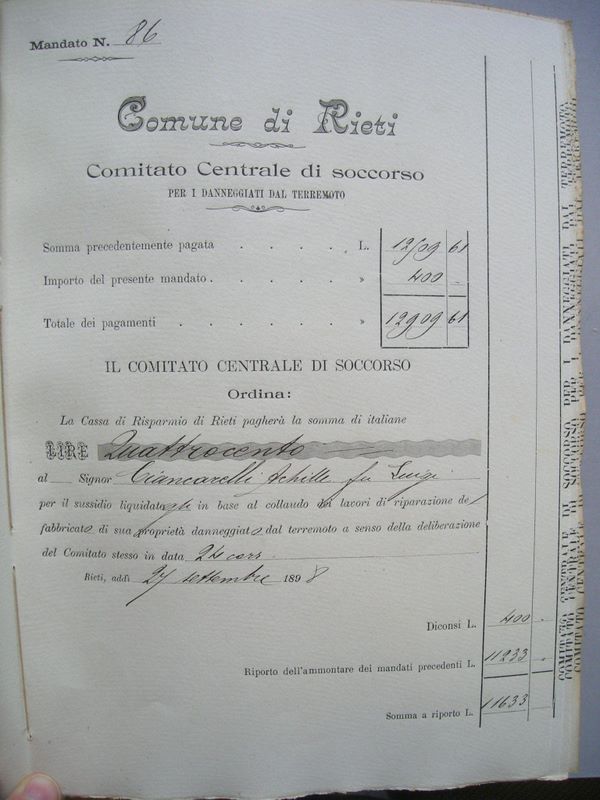 Mandato N. 86
Comune di Rieti
Comitato Centrale di soccorso
PER I DANNEGGIATI DAL TERREMOTO
Somma precedentemente pagata . . . . L. 12509 61
Importo del presente mandato . . . . » 400 -
Totale dei pagamenti . . . . . » 12909 61
IL COMITATO CENTRALE DI SOCCORSO
Ordina:
La Cassa di Risparmio di Rieti pagherà la somma di italiane
LIRE Quattrocento
al Signor Ciancarelli Achille fu Luigi
per il sussidio liquidatogli in base al collaudo dei lavori di riparazione del
fabbricato di sua proprietà danneggiato dal terremoto a senso della deliberazione
del Comitato stesso in data 24 corr.
Rieti, addì 27 settembre 1898
Diconsi L. 400 -
Riporto dell'ammontare dei mandati precedenti L. 11233 -
Somma a riporto L. 11633
COMITATO CENTRALE DI SOCCORSO PER I DANNEGGIATI DAL TERREMOTO